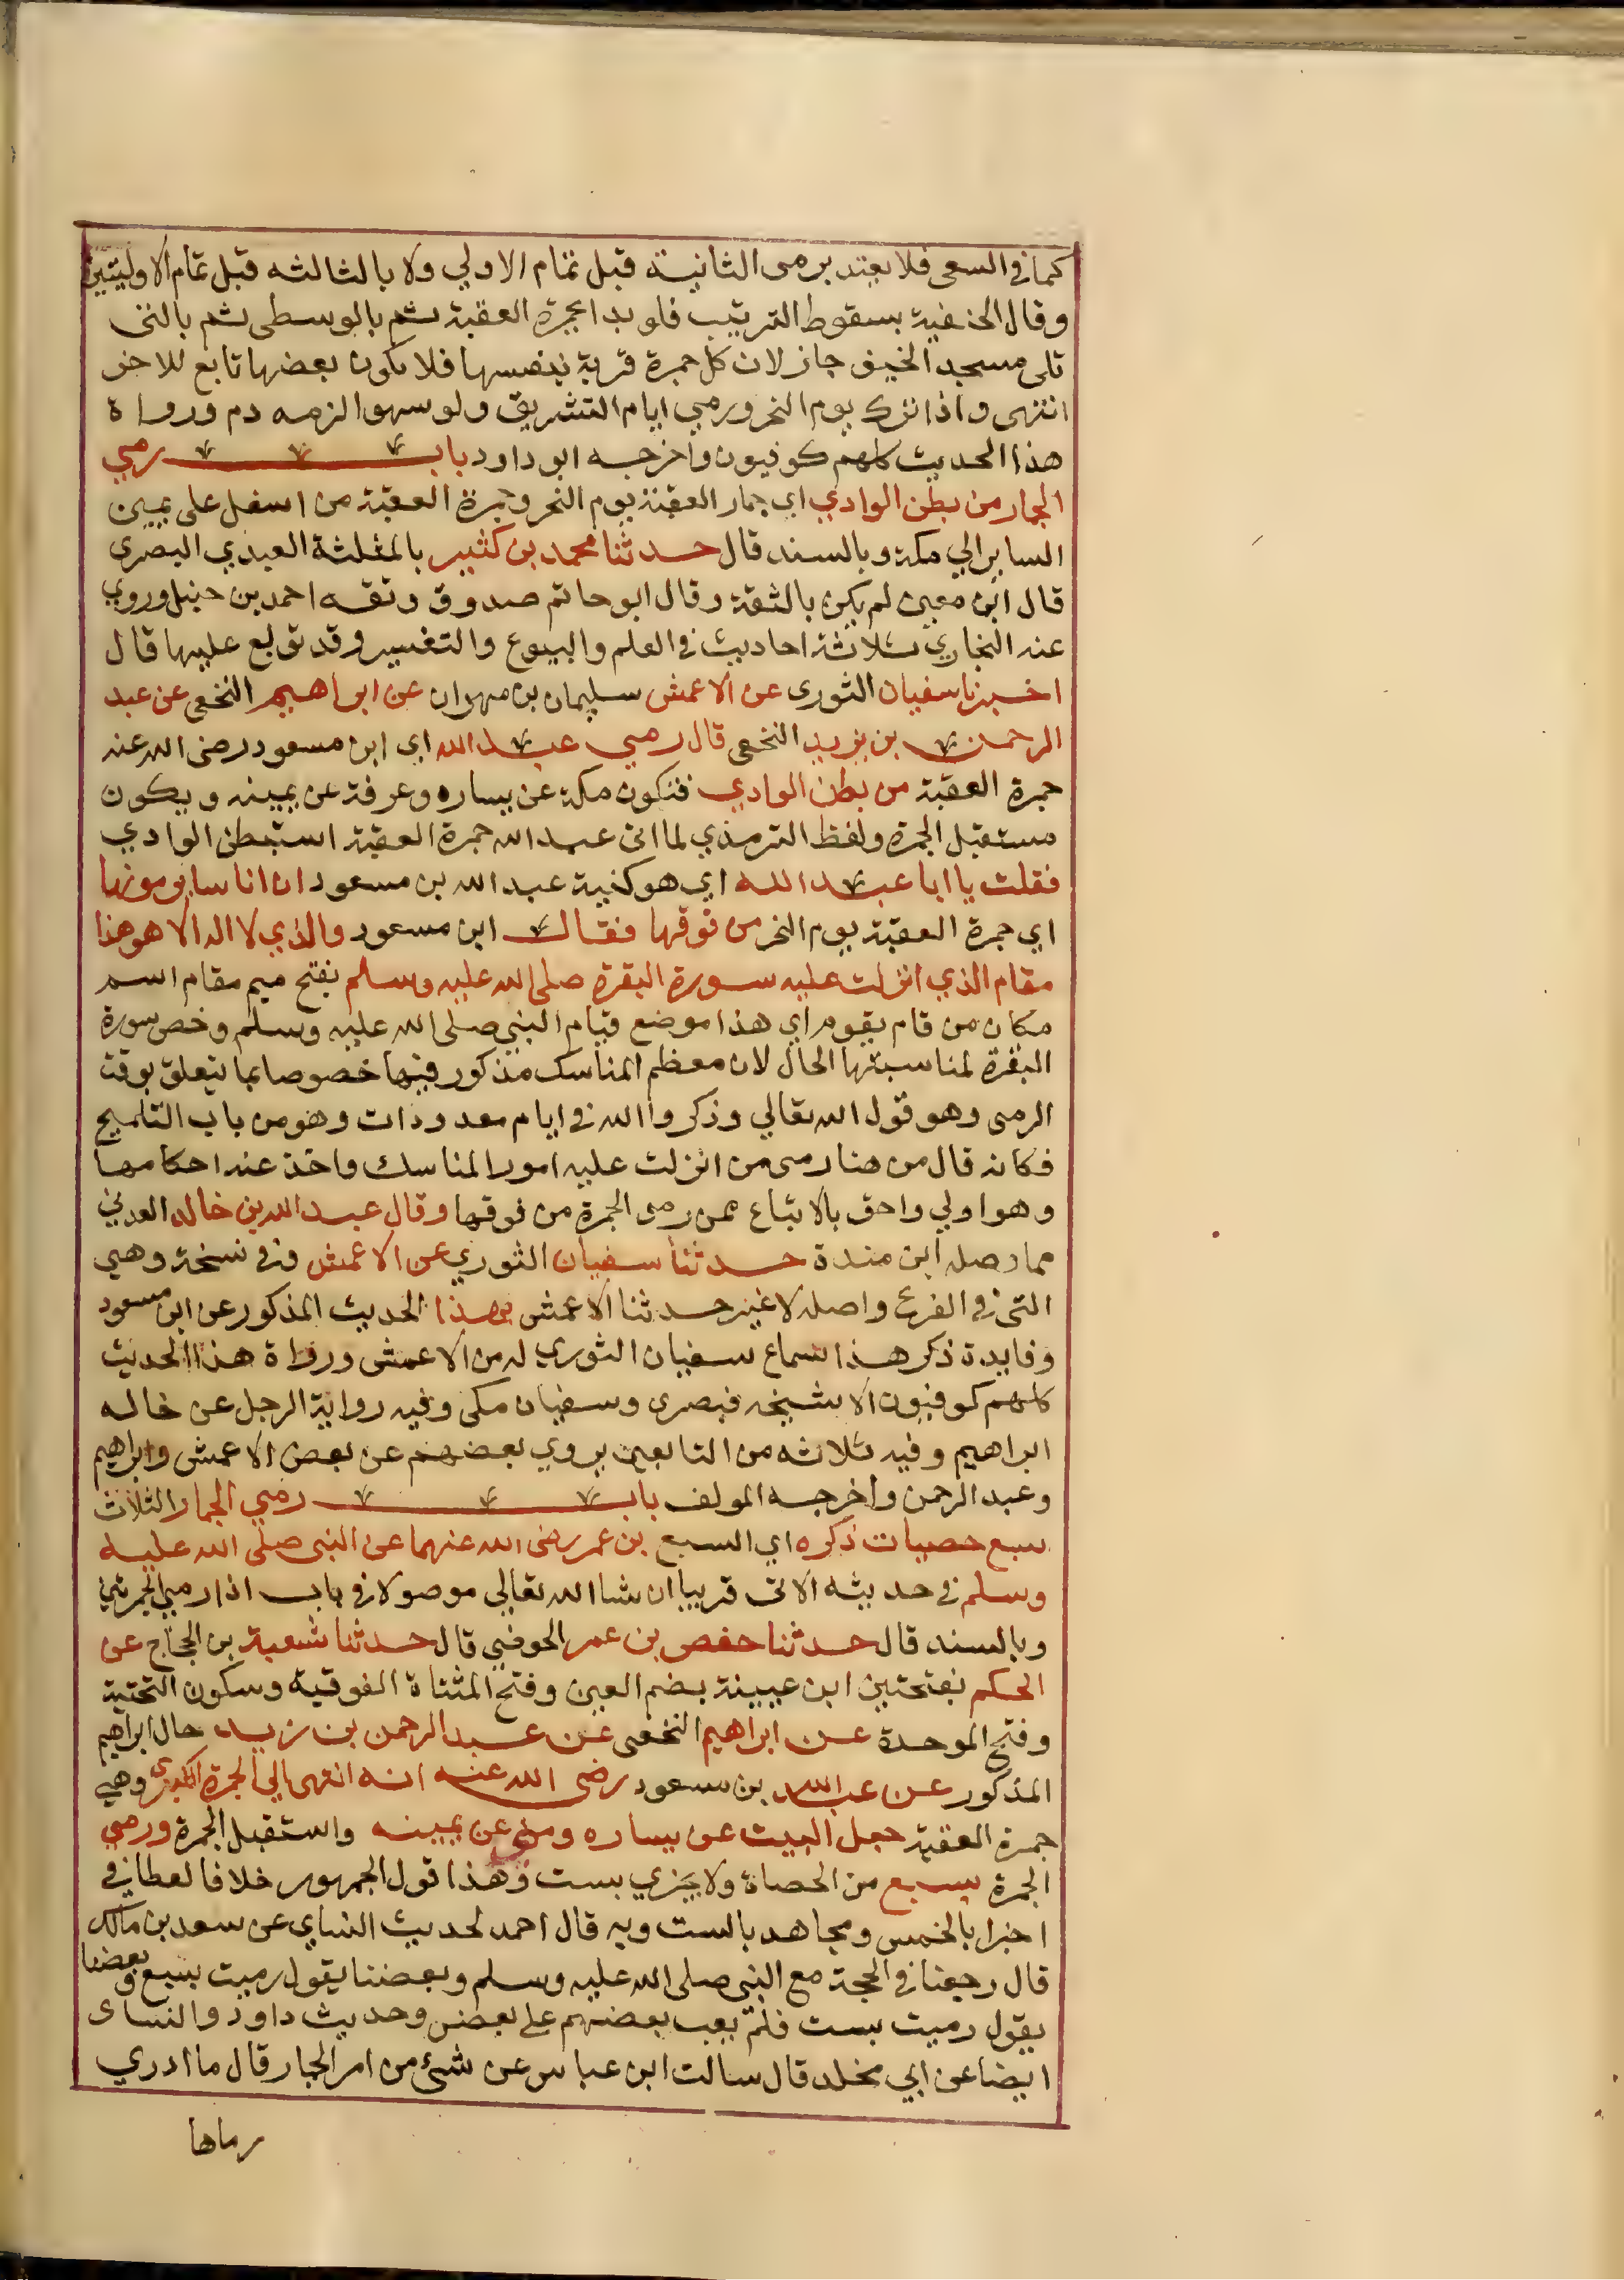 كما في السعي فلا يعتد برمي الثانية قبل تمام الاولي ولا بالثالثه قبل تمام الاوليتين
وقال الحنفية بسقوط الترتيب فلو بدا بجمرة العقبة ثم بالوسطى ثم بالتى
تلى مسجد الخيف جاز لان كل جمرة قربة بنفسها فلا يكون بعضها تابع للاخر
انتهى واذا ترك يوم النحر ورمي ايام التشريق ولو سهوا لزمه دم ورواة
هذا الحديث كلهم كوفيون واخرجه ابو داود باب رمي
الجمار من بطن الوادي اي جمار العقبة يوم النحر وجمرة العقبة من اسفل على يمين
السايرالي مكة وبالسند قال حدثنا محمد بن كثير بالمثلثة العبدي البصري
قال ابن معين لم يكن بالثقة وقال ابو حاتم صدوق وثقه احمد بن حنبل وروي
عنه البخاري ثلاثة احاديث في العلم والبيوع والتفسير وقد توبع عليها قال
اخبرنا سفيان الثورى عن الاعمش سليمان بن مهران عن ابراهيم النخعي عن عبد
الرحمن بن يزيد النخعى قال رمي عبد الله اي ابن مسعود رضى الله عنه
جمرة العقبة من بطن الوادي فتكون مكة عن يساره وعرفة عن يمينه ويكون
مستقبل الجمرة ولفظ الترمذي لما اتى عبد الله جمرة العقبة استبطن الوادي
فقلت يا ابا عبد الله اي هو كنية عبد الله بن مسعود ان اناسا يرمونها
اي جمرة العقبة يوم النحر من فوقها فقال ابن مسعود والذي لا اله الا هو هذا
مقام الذي انزلت عليه سورة البقرة صلى الله عليه وسلم بفتح ميم مقام اسم
مكان من قام يقوم اي هذا موضع قيام النبي صلى الله عليه وسلم وخص سورة
البقرة لمناسبتها الحال لان معظم المناسك مذكور فيها خصوصا بما يتعلق بوقت
الرمى وهو قول الله تعالي وذكروا الله في ايام معدودات وهو من باب التلميح
فكانه قال من هنا رمى من انزلت عليه امور المناسك واخذ عنه احكامها
وهو اولي واحق بالاتباع ممن رمى الجمرة من فوقها وقال عبد الله بن خالد العدني
مما وصله ابن مندة حدثنا سفيان الثوري عن الاعمش وفي نسخة وهي
التى في الفرع واصله لا غير حدثنا الاعمش بهذا الحديث المذكور عن ابن مسعود
وفايدة ذكر هذا سماع سفيان الثوري له من الاعمش ورواة هذا الحديث
كلهم كوفيون الا شيخه فبصرى وسفيان مكى وفيه رواية الرجل عن خاله
ابراهيم وفيه ثلاثه من التابعين يروي بعضهم عن بعض الاعمش وابراهيم
وعبد الرحمن واخرجه المولف باب رمي الجمار الثلاث
سبع حصيات ذكره اي السبع بن عمر رضى الله عنهما عن النبى صلى الله عليه
وسلم في حديثه الاتى قريبا ان شا الله تعالي موصولا في باب اذا رمي الجمرتين
وبالسند قال حدثنا حفص بن عمر الحوضي قال حدثنا شعبة بن الحجاج عن
الحكم بفتحتين ابن عيينة بضم العين وفتح المثناة الفوقية وسكون التحتية
وفتح الموحدة عن ابراهيم النخعى عن عبد الرحمن بن زيد حال ابراهيم
المذكور عن عبد الله بن مسعود رضى الله عنه انه انتهى الي الجمرة الكبرى وهي
جمرة العقبة جعل البيت عن يساره ومنى عن يمينه واستقبل الجمرة ورمي
الجمرة بسبع من الحصاة ولا يجزي بست وهذا قول الجمهور خلافا لعطا في
اجزا بالخمس ومجاهد بالست وبه قال احمد لحديث النساي عن سعد بن مالك
قال رجعنا في الحجة مع النبى صلى الله عليه وسلم وبعضنا يقول رميت بسبع وبعضنا
يقول رميت بست فلم يعب بعضهم على بعض وحديث داود والنساى
ايضا عن ابي مخلد قال سالت ابن عباس عن شئ من امر الجمار قال ما ادري
رماها